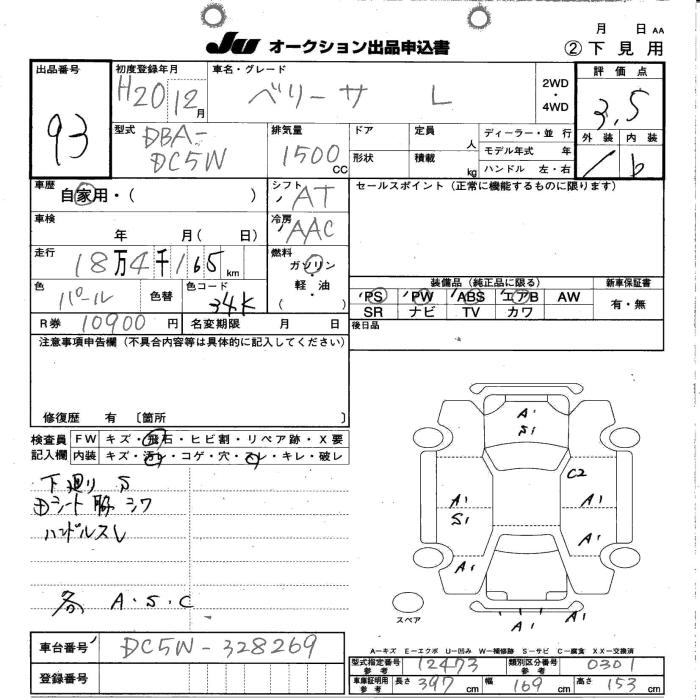 月 日 AA
JU オークション出品申込書 ②下見用
出品番号 初度登録年月 車名・グレード 評価点
93 H20 12月 ベリーサ L 2WD・4WD 3.5
型式 DBA-DC5W 排気量 1500cc
ドア 定員 人 ディーラー・並行 外装 内装
形状 積載 kg モデル年式 年
ハンドル 左・右 b
車歴 自家用・( ) シフト AT セールスポイント(正常に機能するものに限ります)
車検 年 月( 日) 冷房 AAC
走行 18万4千165km 燃料 ガソリン・軽油( )
色 パール 色替 色コード 34K
装備品(純正品に限る) 新車保証書
PS PW ABS エアB AW 有・無
SR ナビ TV カワ
R券 10900円 名変期限 月 日 後日品
注意事項申告欄(不具合内容等は具体的に記入してください)
修復歴 有 〔箇所 〕
検査員記入欄 FW キズ・飛石・ヒビ割・リペア跡・X要
内装 キズ・汚れ・コゲ・穴・スレ・キレ・破レ
下廻り S
シート シワ
ハンドルスレ
各 A・S・C
A1
S1
C2
A1 A1
S1
A1
A1
スペア
A1 A1
車台番号 DC5W-328269
登録番号
A-キズ E-エクボ U-凹み W-補修跡 S-サビ C-腐食 XX-交換済
型式指定番号 参考 12473 類別区分番号 参考 0301
車庫証明用 参考 長さ 397cm 幅 169cm 高さ 153cm